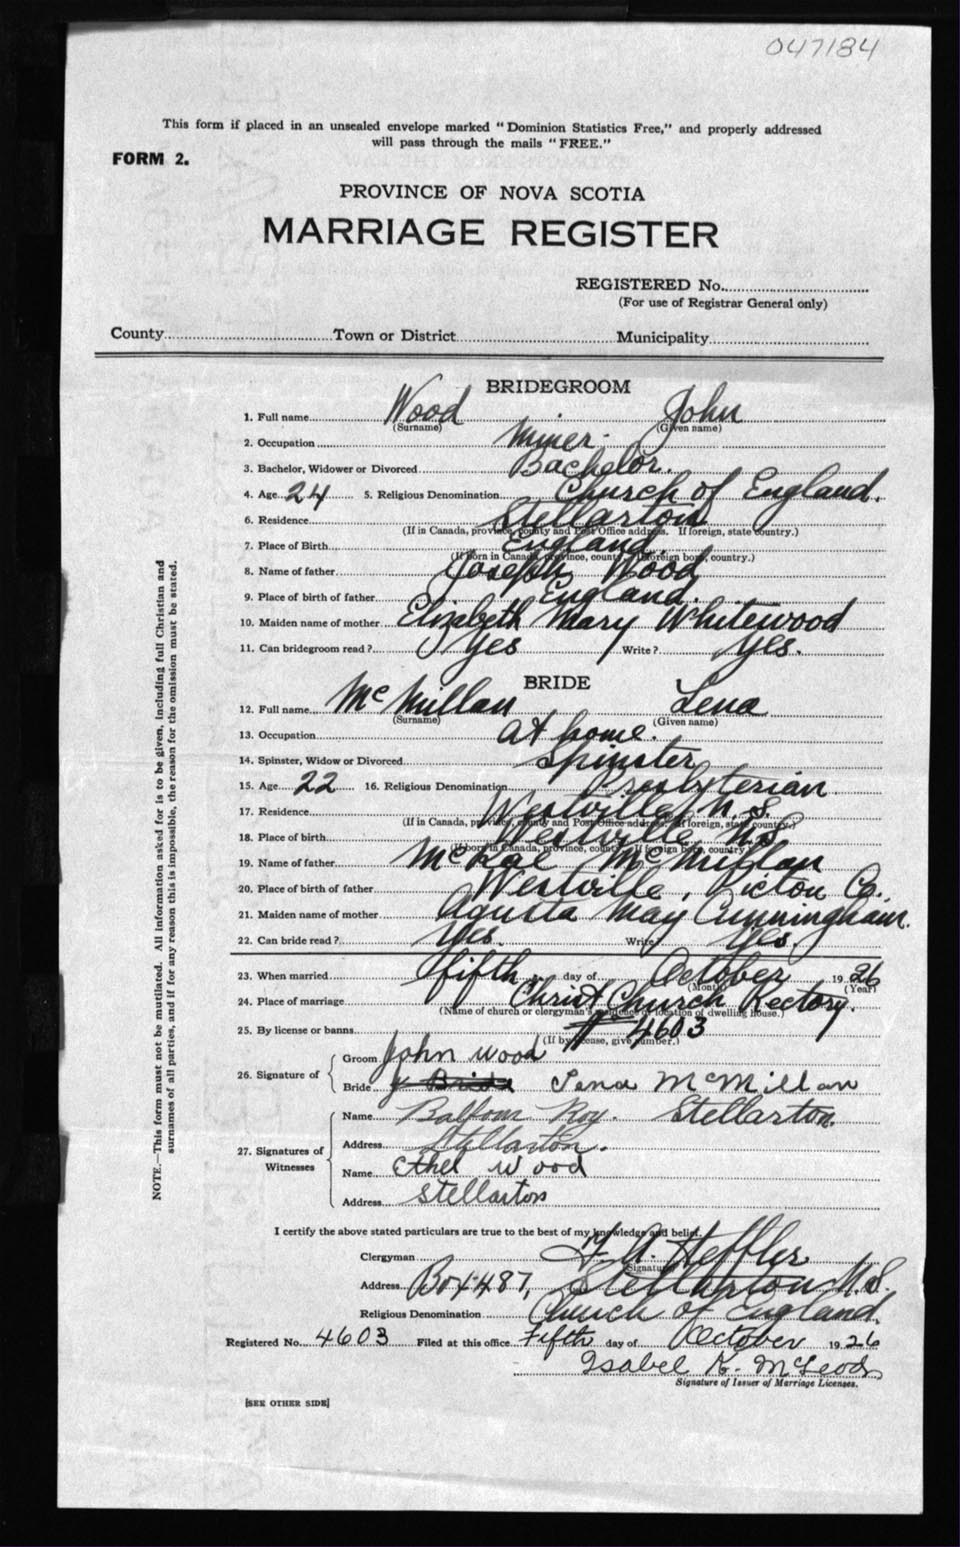 047184
This form if placed in an unsealed envelope marked "Dominion Statistics Free," and properly addressed
will pass through the mails "FREE."
FORM 2.
PROVINCE OF NOVA SCOTIA
MARRIAGE REGISTER
REGISTERED No.
(For use of Registrar General only)
County Town or District Municipality
BRIDEGROOM
1. Full name Wood John
(Surname) (Given name)
2. Occupation Miner.
3. Bachelor, Widower or Divorced Bachelor.
4. Age 24 5. Religious Denomination Church of England.
6. Residence Stellarton
(If in Canada, province, county and Post Office address. If foreign, state country.)
7. Place of Birth England.
(If born in Canada, province, county. If foreign born, country.)
8. Name of father Joseph Wood
9. Place of birth of father England.
10. Maiden name of mother Elizabeth Mary Whitewood
11. Can bridegroom read? Yes Write? Yes.
BRIDE
12. Full name McMillan Lena
(Surname) (Given name)
13. Occupation At home.
14. Spinster, Widow or Divorced Spinster
15. Age 22 16. Religious Denomination Presbyterian
17. Residence Westville N.S.
(If in Canada, province, county and Post Office address. If foreign, state country.)
18. Place of birth Westville N.S.
(If born in Canada, province, county. If foreign born, country.)
19. Name of father McRae McMillan
20. Place of birth of father Westville, Picton Co.
21. Maiden name of mother Agusta May Cunningham.
22. Can bride read? Yes. Write? Yes.
23. When married fifth day of October 1926
(Month) (Year)
24. Place of marriage Christ Church Rectory.
(Name of church or clergyman's residence or location of dwelling house.)
25. By license or banns # 4603
(If by license, give number.)
26. Signature of
Groom John Wood
Bride Lena McMillan
27. Signatures of Witnesses
Name Balfour Roy. Stellarton.
Address Stellarton.
Name Ethel Wood
Address Stellarton
I certify the above stated particulars are true to the best of my knowledge and belief.
Clergyman F. A. Heffler
(Signature)
Address Box 487, Stellarton N.S.
Religious Denomination Church of England.
Registered No. 4603 Filed at this office Fifth day of October 1926
Isabel K. McLeod
Signature of Issuer of Marriage Licenses.
[SEE OTHER SIDE]
NOTE.—This form must not be mutilated. All information asked for is to be given, including full Christian and
surnames of all parties, and if for any reason this is impossible, the reason for the omission must be stated.